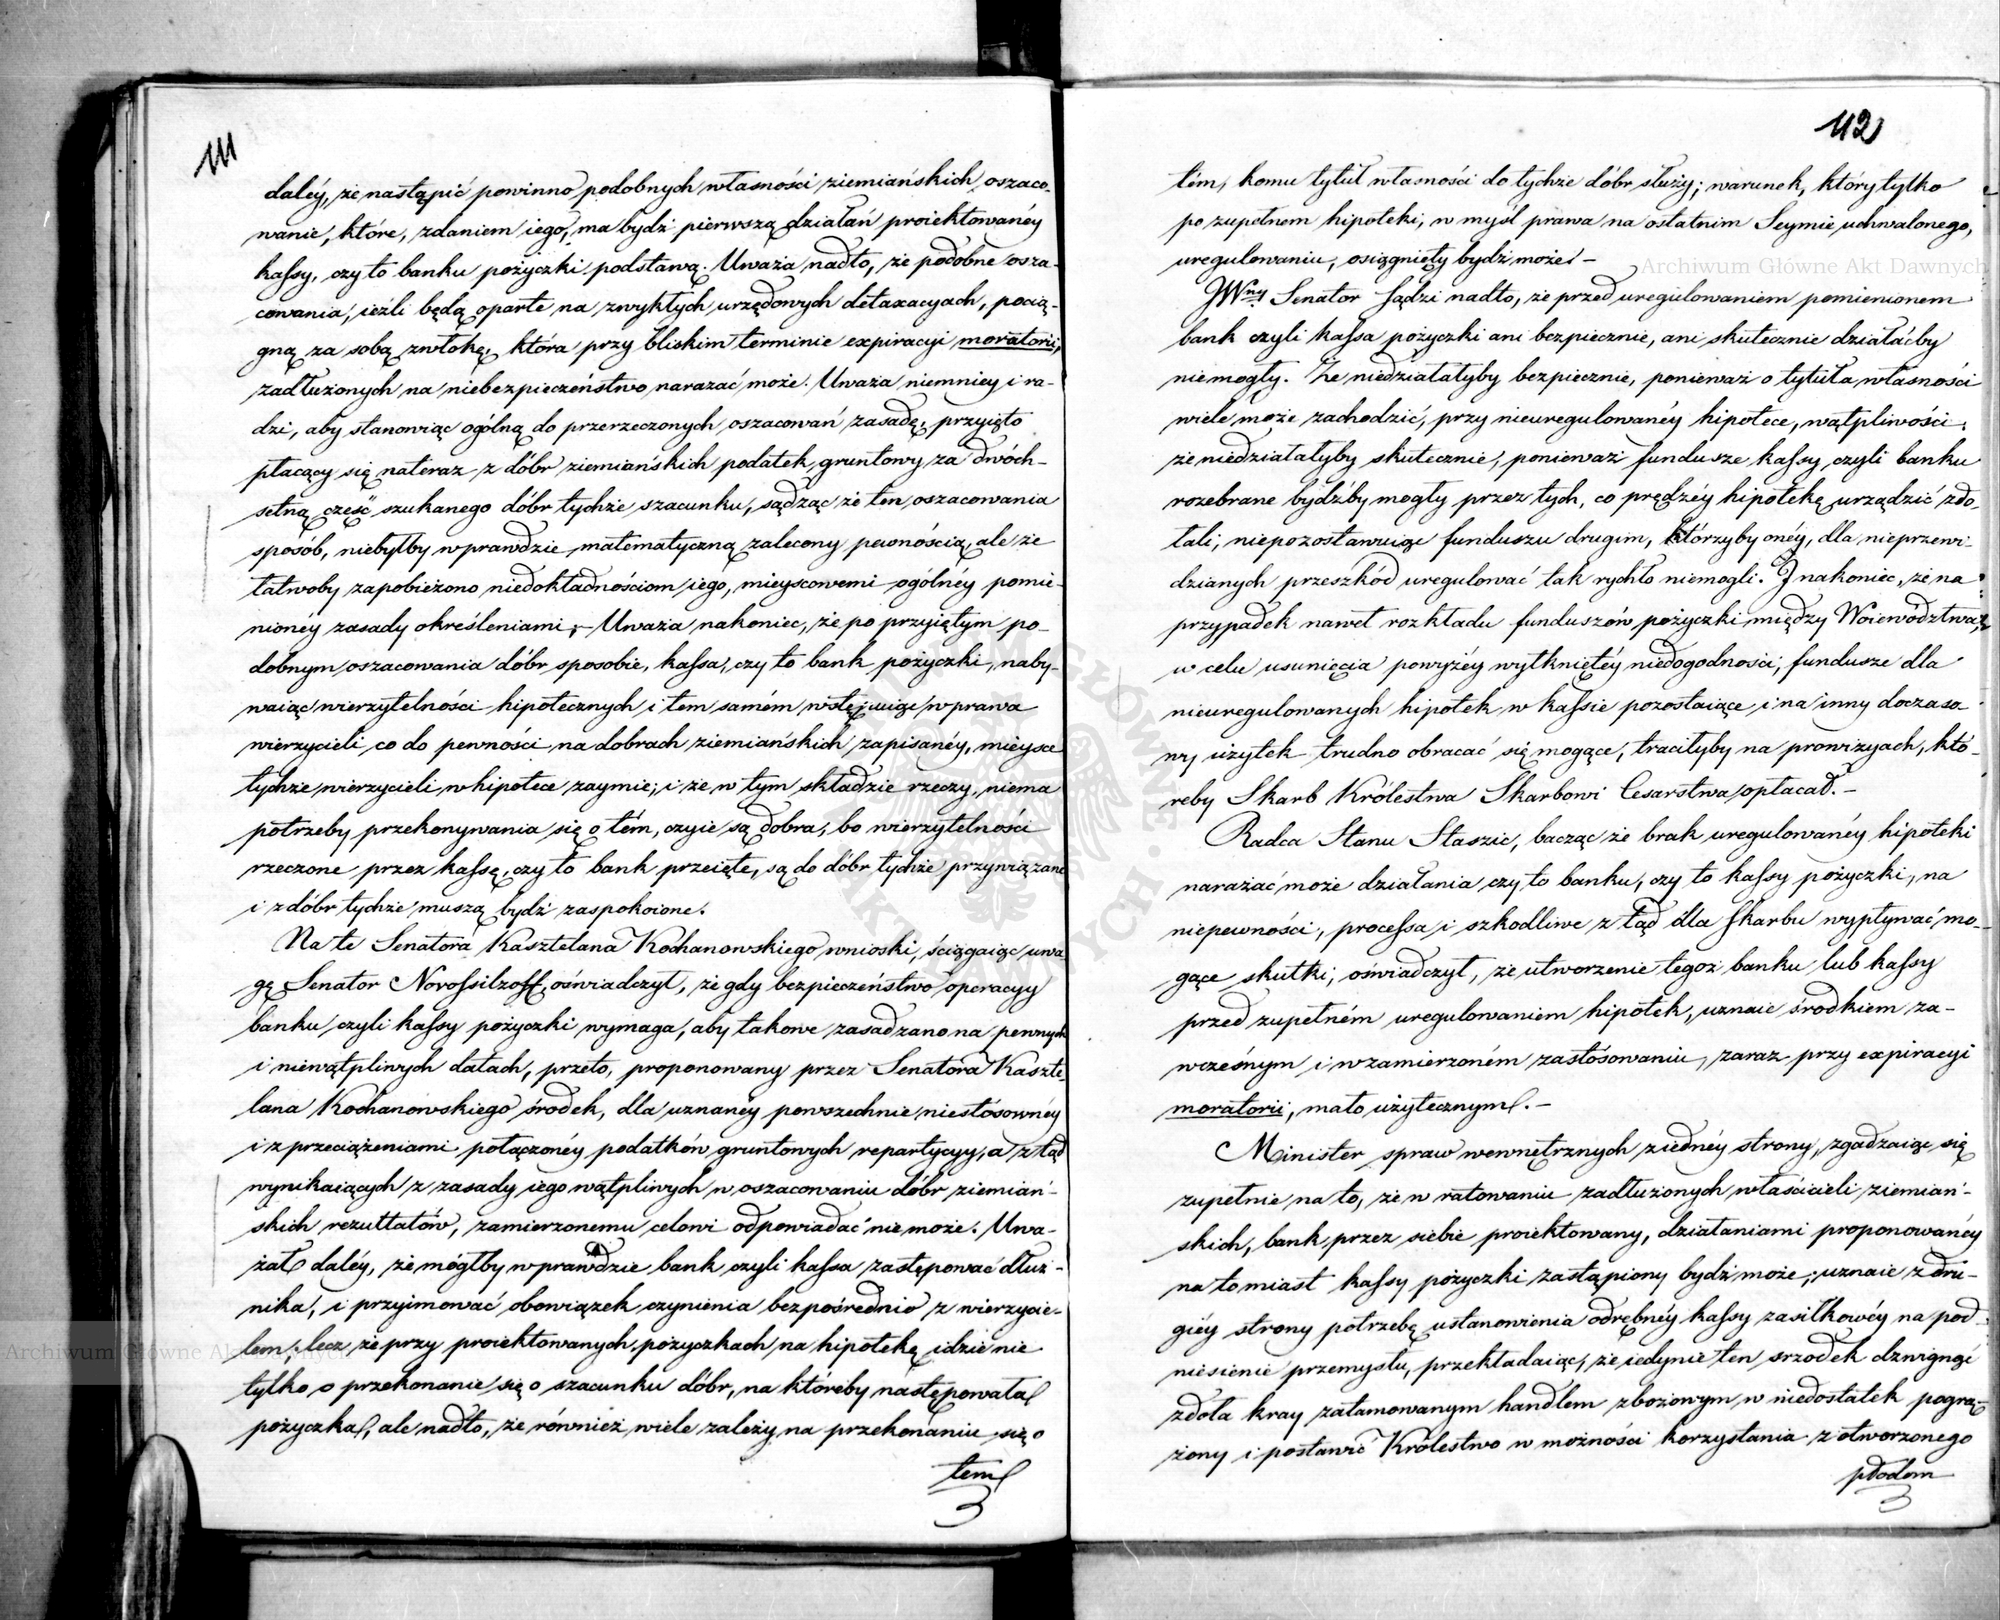 111
daléy, że nastąpić powinno podobnych własności ziemiańskich oszaco-
wanie, które, zdaniem iego, ma bydź pierwszą działań proiektowanéy
kassy, czy to banku pożyczki podstawą. Uważa nadto, że podobne osza-
cowania, ieżli będą oparte na zwykłych urzędowych detaxacyach, pocią-
gną za sobą zwłokę, która przy bliskim terminie expiracyi moratorii,
zadłużonych na niebezpieczeństwo narażać może. Uważa niemniey i ra-
dzi, aby stanowiąc ogólną do przerzeczonych oszacowań zasadę, przyięto
płacący się nateraz z dóbr ziemiańskich podatek gruntowy za dwóch-
setną część szukanego dóbr tychże szacunku, sądząc że ten oszacowania
sposób, niebyłby wprawdzie matematyczną zalecony pewnością, ale że
łatwoby zapobieżono niedokładnościom iego, mieyscowemi ogólnéy pomie-
nioney zasady określeniami; – Uważa nakoniec, że po przyiętym po-
dobnym oszacowania dóbr sposobie, kassa, czy to bank pożyczki, naby-
waiąc wierzytelności hipotecznych i tem samém wstępuiąc w prawa
wierzycieli, co do pewności na dobrach ziemiańskich zapisanéy, mieysce
tychże wierzycieli w hipotece zaymie; i że w tym składzie rzeczy, niema
potrzeby przekonywania się o tém, czyie są dobra, bo wierzytelności
rzeczone przez kassę, czy to bank przeięte, są do dóbr tychże przywiązane
i z dóbr tychże muszą bydź zaspokoione.
Na te Senatora Kasztelana Kochanowskiego wnioski, ściągaiąc uwa-
gę Senator Novossilzoff, oświadczył, że gdy bezpieczeństwo operacyy
banku, czyli kassy pożyczki wymaga, aby takowe zasadzano na pewnych
i niewątpliwych datach, przeto, proponowany przez Senatora Kaszte-
lana Kochanowskiego środek, dla uznanéy powszechnie niestósownéy
i z przeciążeniami połączonéy podatków gruntowych repartycyy, a ztąd
wynikaiących z zasady iego wątpliwych w oszacowaniu dóbr ziemiań-
skich rezultatów, zamierzonemu celowi odpowiadać nie może. Uwa-
żał daléy, że mógłby wprawdzie bank czyli kassa zastępować dłuż-
nika, i przyimować obowiązek czynienia bezpośrednio z wierzycie-
lem; lecz że przy proiektowanych pożyczkach na hipotekę idzie nie
tylko o przekonanie się o szacunku dóbr, na któreby następowała
pożyczka, ale nadto, że również wiele zależy na przekonaniu się o
tem
112
tém, komu tytuł własności do tychże dóbr służy; warunek, który tylko
po zupełnem hipoteki, w myśl prawa na ostatnim Seymie uchwalonego,
uregulowaniu, osiągnięty bydź może. –
JWny Senator sądzi nadto, że przed uregulowaniem pomienionem
bank czyli kassa pożyczki ani bezpiecznie, ani skutecznie działaćby
niemogły. Że niedziałałyby bezpiecznie, ponieważ o tytuła własności
wiele może zachodzić, przy nieuregulowanéy hipotece, wątpliwości;
że niedziałałyby skutecznie, ponieważ fundusze kassy czyli banku
rozebrane bydźby mogły przez tych, co prędzéy hipotekę urządzić zdo-
łali; niepozostawuiąc funduszu drugim, którzyby onéy, dla nieprzewi-
dzianych przeszkód uregulować tak rychło niemogli. I nakoniec, że na
przypadek nawet rozkładu funduszów pożyczki między Woiewództwa,
w celu usunięcia powyżéy wytkniętéy niedogodności, fundusze dla
nieuregulowanych hipotek w kassie pozostaiące, i na inny doczaso-
wy użytek trudno obracać się mogące, traciłyby na prowizyach, któ-
reby Skarb Królestwa Skarbowi Cesarstwa opłacał. –
Radca Stanu Staszic, bacząc że brak uregulowanéy hipoteki
narażać może działania czy to banku, czy to kassy pożyczki, na
niepewności, processa i szkodliwe z tąd dla skarbu wypływać mo-
gące skutki; oświadczył, że utworzenie tegoż banku lub kassy
przed zupełném uregulowaniem hipotek, uznaie środkiem za-
wczesnym i w zamierzoném zastósowaniu, zaraz przy expiracyi
moratorii, mało użytecznym. –
Minister spraw wewnętrznych z iednéy strony, zgadzaiąc się
zupełnie na to, że w ratowaniu zadłużonych właścicieli ziemiań-
skich, bank przez siebie proiektowany, działaniami proponowanéy
natomiast kassy pożyczki zastąpiony bydź może; uznaie z dru-
giéy strony potrzebę ustanowienia odrębnéy kassy zasiłkowéy na pod-
niesienie przemysłu, przekładaiąc, że iedynie ten srzodek dzwignąć
zdoła kray zatamowanym handlem zbożowym w niedostatek pogrą-
żony i postawić Królestwo w możności korzystania z otworzonego
płodom